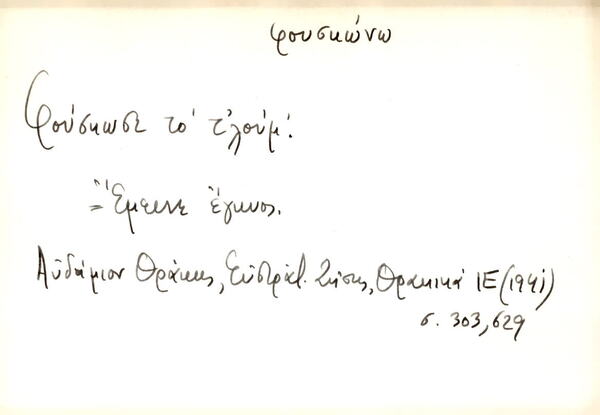 φουσκώνω
Φούσκωσε το' τ'λούμ'.
= Έμεινε έγκυος.
Αὐδήμιον Θράκης, Εὐστράτ. Ζήσης, Θρακικά ΙΕ (1941)
σ. 303, 629